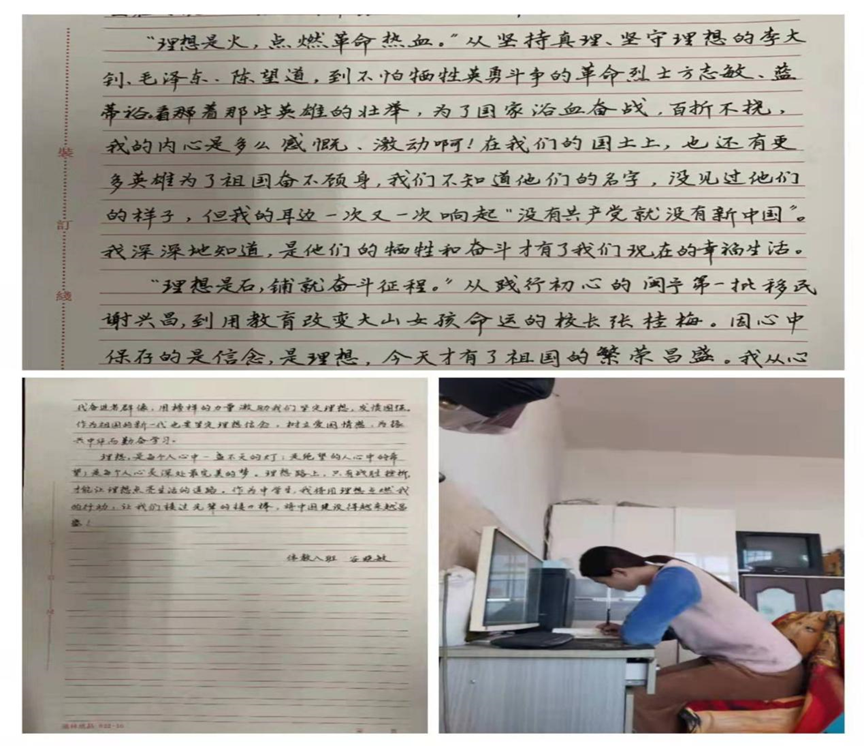 "理想是火，点燃革命热血。"从坚持真理、坚守理想的李大
钊、毛泽东、陈望道，到不怕牺牲英勇斗争的革命烈士方志敏、蓝
蒂裕。看着那些英雄的壮举，为了国家浴血奋战，百折不挠，
我的内心是多么感慨、激动啊！在我们的国土上，也还有更
多英雄为了祖国奋不顾身，我们不知道他们的名字，没见过他们
的样子，但我的耳边一次又一次响起"没有共产党就没有新中国"。
我深深地知道，是他们的牺牲和奋斗才有了我们现在的幸福生活。
"理想是石，铺就奋斗征程。"从践行初心的闽宁第一批移民
谢兴昌，到用教育改变大山女孩命运的校长张桂梅。因心中
保存的是信念，是理想，今天才有了祖国的繁荣昌盛。我从心
装
訂
綫
代奋进者群像，用榜样的力量激励我们坚定理想，发愤图强。
作为祖国的新一代也要坚定理想信念，树立爱国情感，为振
兴中华而勤奋学习。
理想，是每个人心中一盏不灭的灯；是绝望的人心中的希
望；是每个人心灵深处最完美的梦。理想路上，只有战胜挫折，
才能让理想点亮生活的道路。作为中学生，我将用理想点燃我
的行动，让我们接过先辈的接力棒，将中国建设得越来越昌
盛！